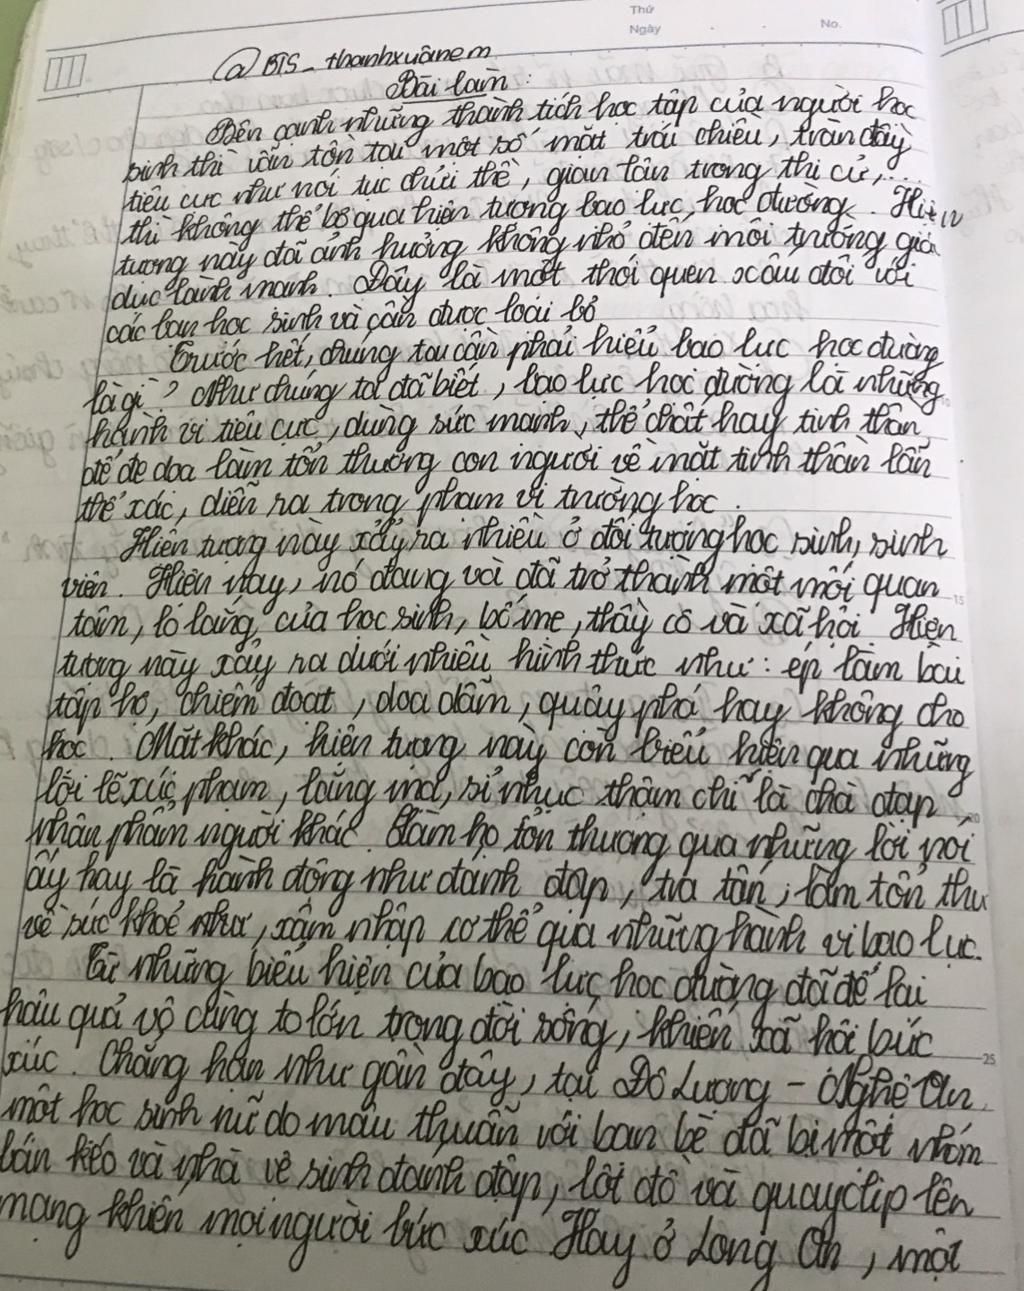 Thứ
Ngày
No.
@BTS_thanhxuânem
Bài làm:
Bên cạnh những thành tích học tập của người học
sinh thì vẫn tồn tại một số mặt trái chiều, tràn đầy
tiêu cực như nói tục chửi thề, gian lận trong thi cử,...
thì không thể bỏ qua hiện tượng bạo lực học đường. Hiện
tượng này đã ảnh hưởng không nhỏ đến môi trường giáo
dục lành mạnh. Đây là một thói quen xấu đối với
các bạn học sinh và cần được loại bỏ
Trước hết, chúng ta cần phải hiểu bạo lực học đường
là gì? Như chúng ta đã biết, bạo lực học đường là những
hành vi tiêu cực, dùng sức mạnh, thể chất hay tinh thần
để đe dọa làm tổn thương con người về mặt tinh thần lẫn
thể xác, diễn ra trong phạm vi trường học.
Hiện tượng này xảy ra nhiều ở đối tượng học sinh, sinh
viên. Hiện nay, nó đang và đã trở thành một mối quan
15
tâm, lo lắng của học sinh, bố mẹ, thầy cô và xã hội Hiện
tượng này xảy ra dưới nhiều hình thức như: ép làm bài
tập hộ, chiếm đoạt, dọa dẫm, quậy phá hay không cho
học. Mặt khác, hiện tượng này còn biểu hiện qua những
lời lẽ xúc phạm, lăng mạ, sỉ nhục thậm chí là chà đạp
20
nhân phẩm người khác. Làm họ tổn thương qua những lời nói
ấy hay là hành động như đánh đập, tra tấn, làm tổn thư
về sức khoẻ như, xâm nhập cơ thể qua những hành vi bạo lực.
Từ những biểu hiện của bạo lực học đường đã để lại
hậu quả vô cùng to lớn trong đời sống, khiến xã hội bức
25
xúc. Chẳng hạn như gần đây, tại Đô Lương - Nghệ An
một học sinh nữ do mâu thuẫn với bạn bè đã bị một nhóm
bắn kéo và nhà vệ sinh đánh đập, lột đồ và quay clip lên
mạng khiến mọi người bức xúc Hay ở Long An, một